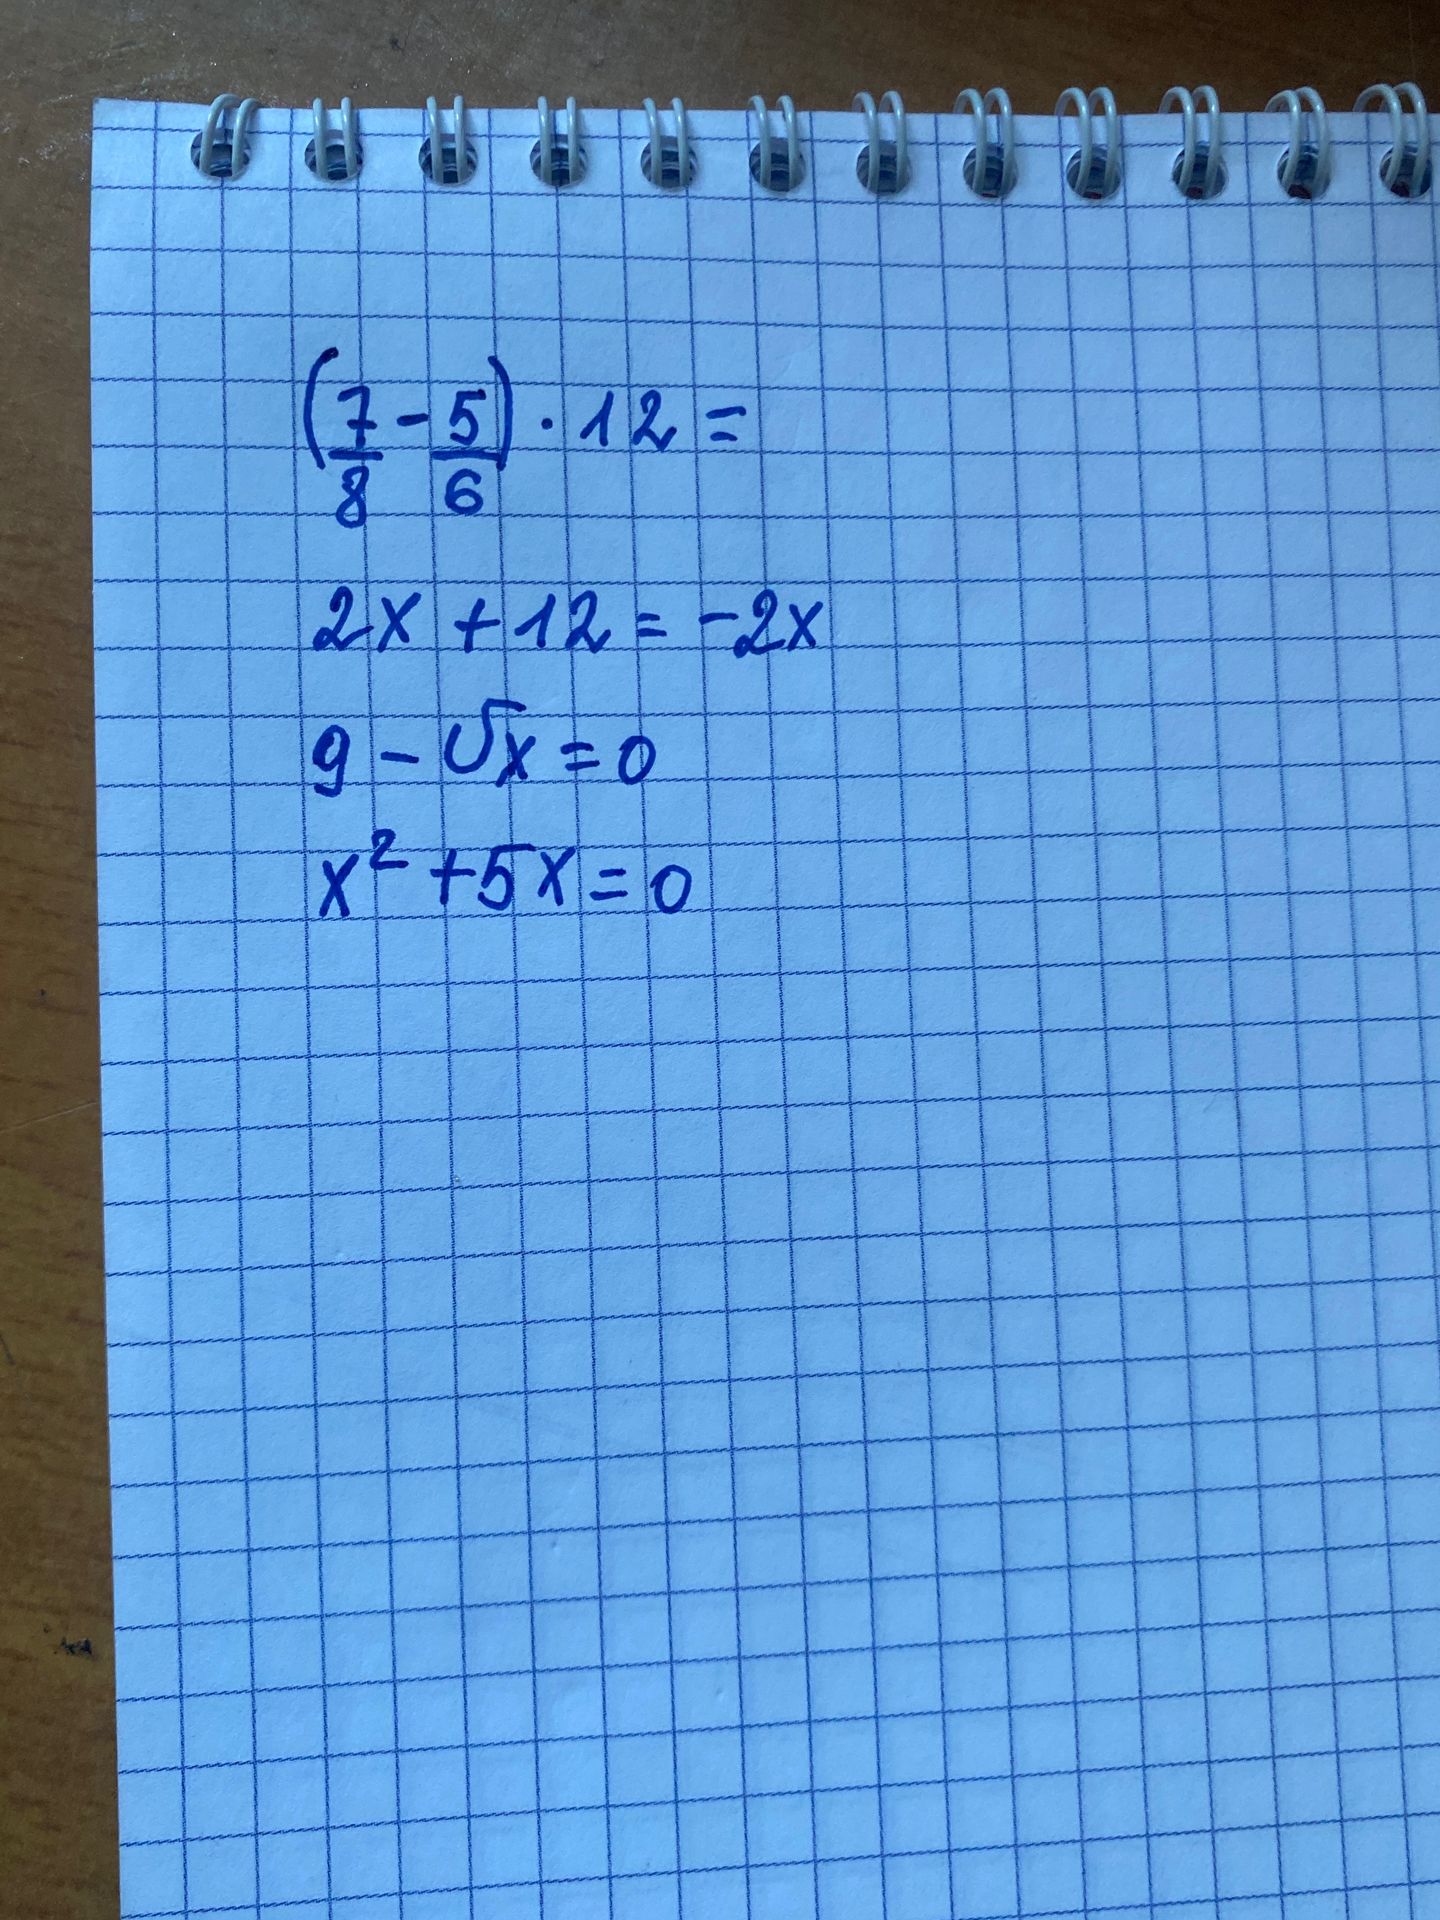 (7/8 - 5/6) · 12 =
2x + 12 = -2x
9 - √x = 0
x² + 5x = 0